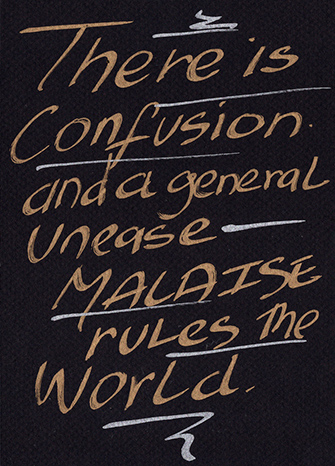 There is
Confusion.
and a general
Unease
MALAISE
rules The
World.